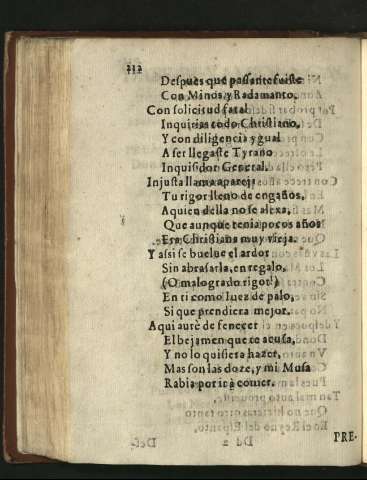 212
Despues que passante fuiste
Con Minos, y Radamanto,
Con solicitud fatal
Inquirias todo Christiano,
Y con diligencia ygual
A ser llegaste Tyrano
Inquisidor General.
Injusta llama apareja
Tu rigor lleno de engaños,
A quien della no se alexa,
Que aunque tenia pocos años
Era Christiana muy vieja.
Y assi se buelue el ardor
Sin abrasarla, en regalo,
(O malogrado rigor!)
En ti como Iuez de palo,
Si que prendiera mejor.
Aqui aurè de fenecer
El bejamen que te acusa,
Y no lo quisiera hazer,
Mas son las doze, y mi Musa
Rabia por irà comer.
PRE-